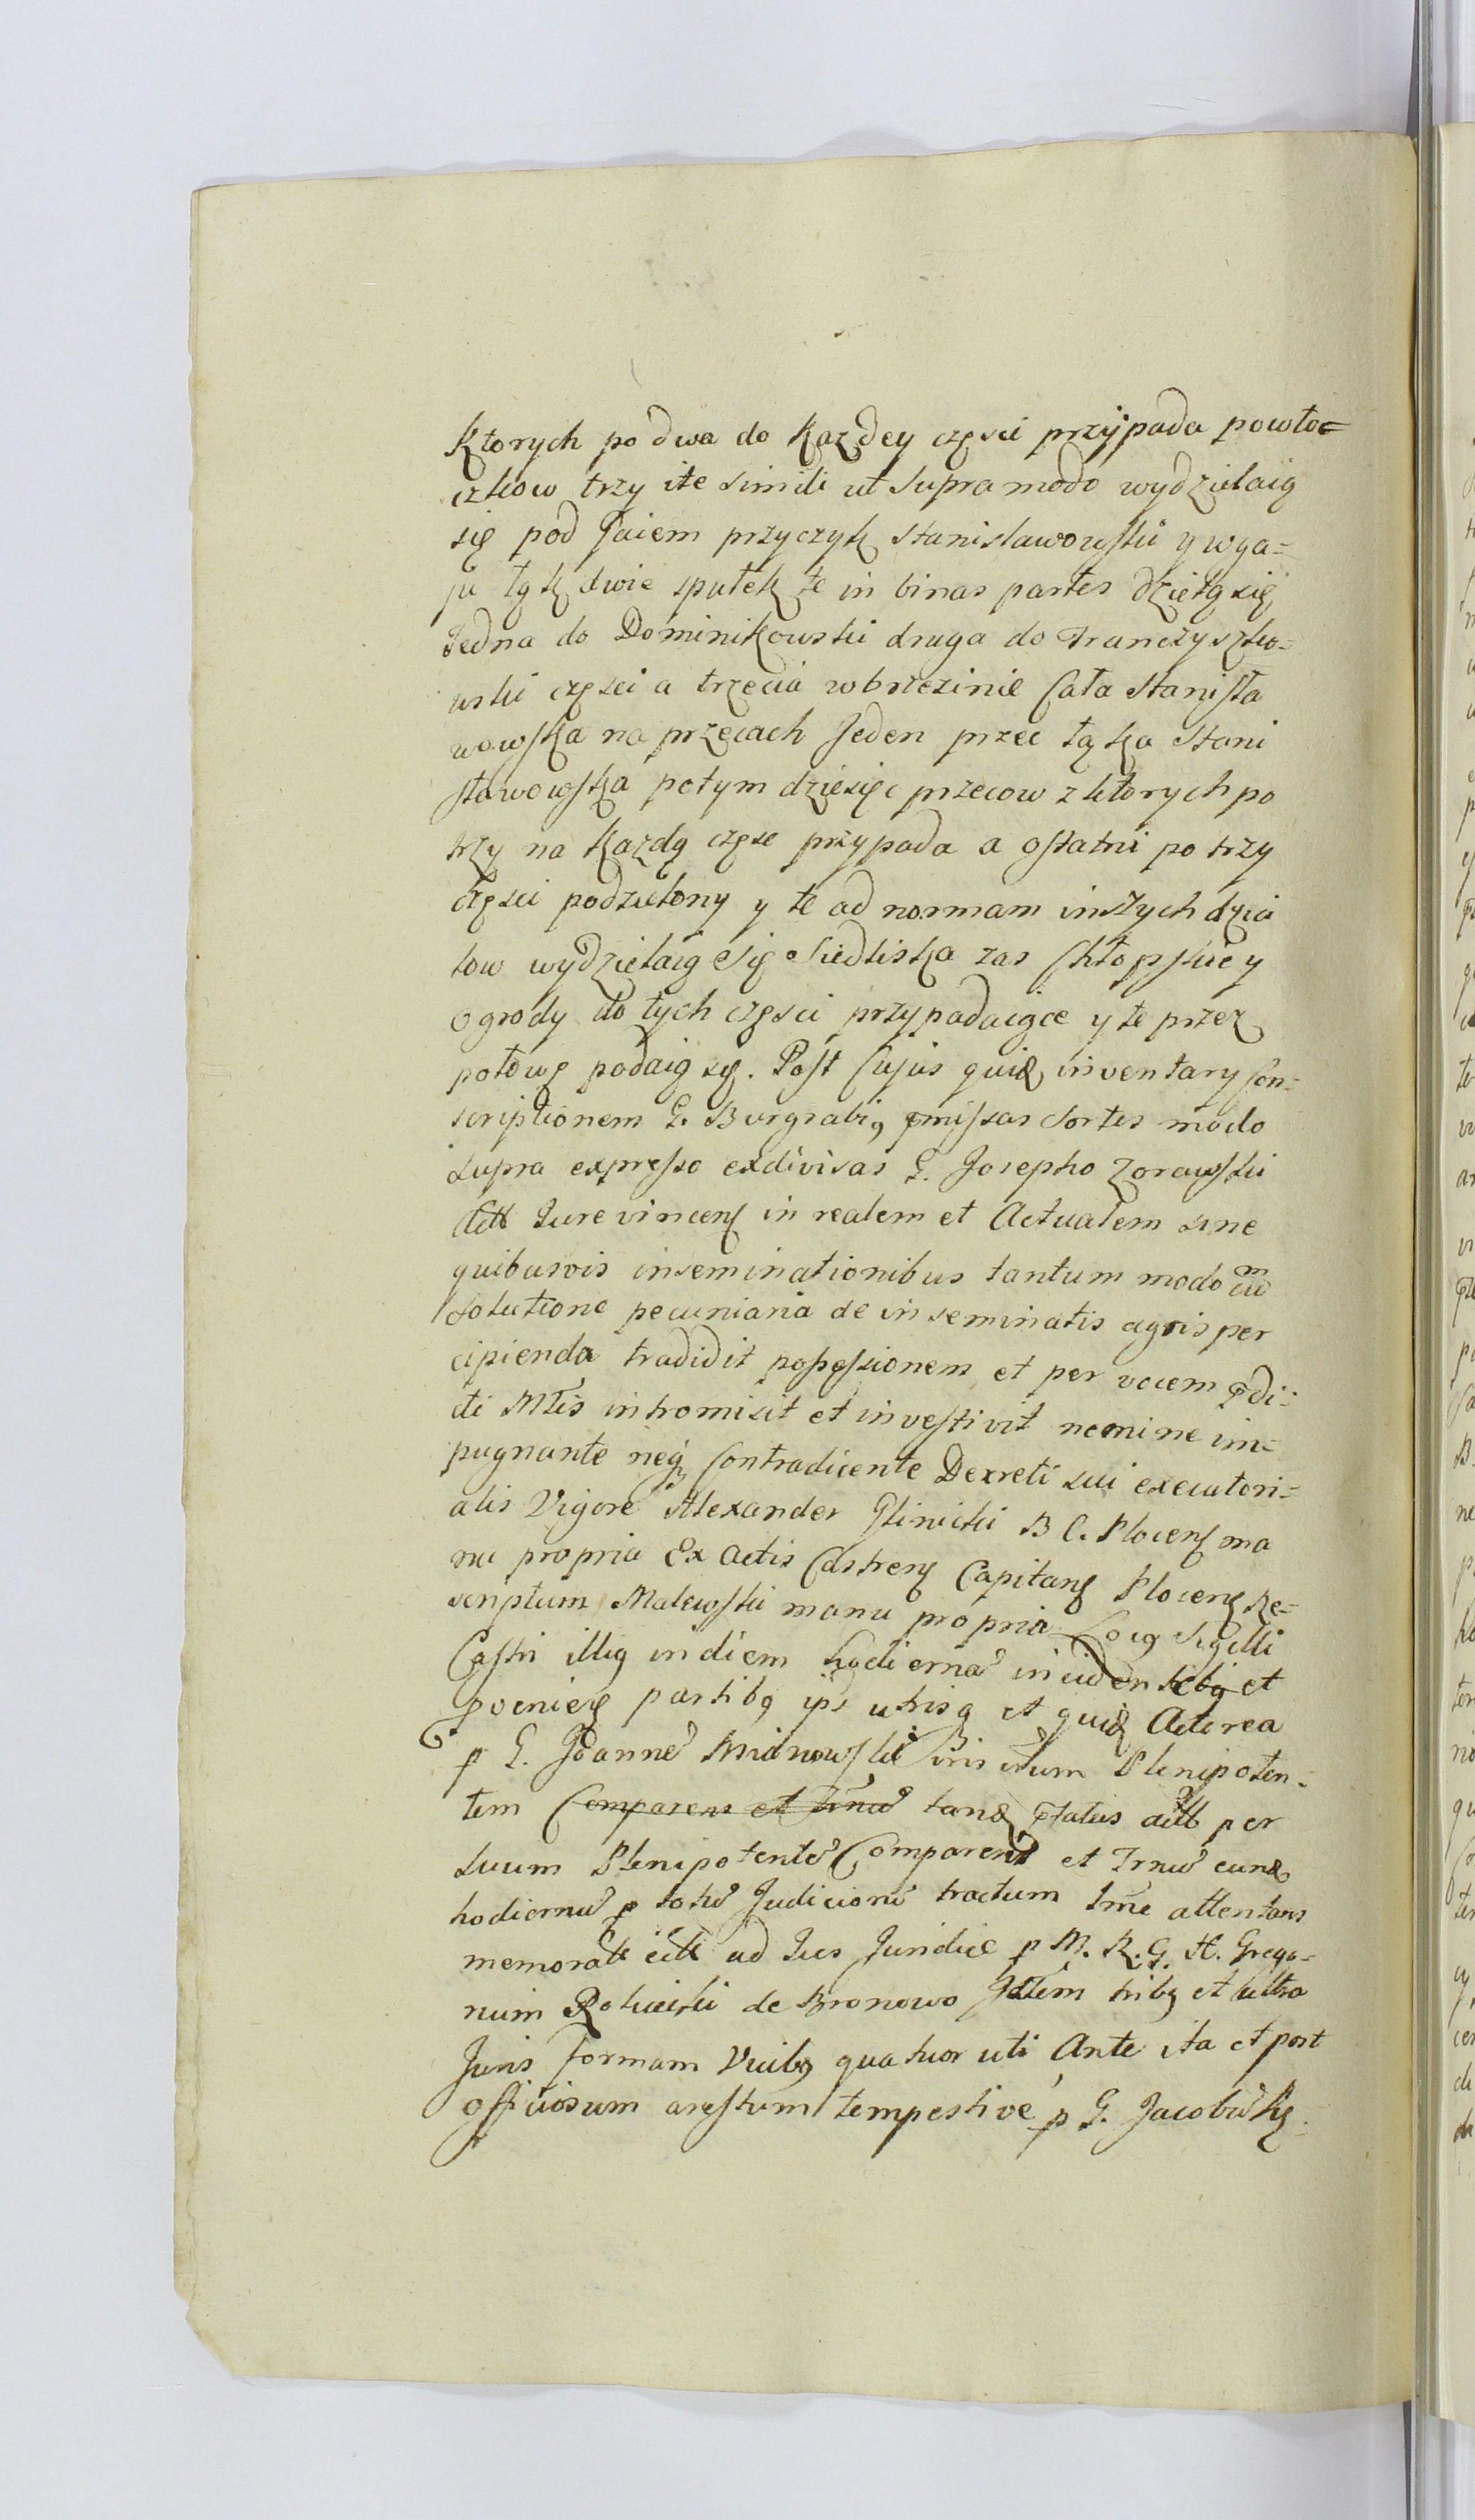 Ktorych po dwa do Kazdey części przypada powłoc=
czkow trzy ite simili ut Supra modo wydzielaią
się pod Gaiem przyczyk Stanislawowski y w ga=
ju łąk dwie spułek te in binas partes dzielą się
Jedna do Dominikowski druga do Franczyszko=
wski części a trzecia w brzezinie Cała Stanisła
wowska na przecach Jeden przec łąka Stani
sławowska potym dziesięc przecow z ktorych po
trzy na Kazdą częsc przypada a ostatni po trzy
częsci podzielony y te ad normam inszych dzia
low wydzielaią się Siedliska zas Chłopskie y
Ogrody do tych części przypadaiące y te przez
połowę podaią się. Post Cujus quid inventary Con=
scriptionem G. Burgrabi9 pmissas Sortes modo
supra expresso exdivisas G. Josepho Zorawski
Jure vincens in realem et Actualem sine
quibusvis inseminationibus tantum modo cum
Solutione pecuniaria de in seminatis agris per
cipienda tradidit possessionem et per vocem pdi=
cti Mtis intromisit et investivit nemine im=
pugnante neq Contradicente Decreti sui executori=
alis Vigore Alexander Glinicki B C. Plocens ma
nu propria Ex Actis Castrens Capitans Plocens Re=
scriptum Malewski manu propria Locg Sigilli
Castri illig in diem hodierna incidentebg et
pveniens partibg ips utrisq et quid Actorea
p G. Joanne Mianowski Plenipoten=
tem Comparens et tang per
suum Plenipotente Comparens et eund
hodierna p totu Judiciorū tractum attentans
memorati ad Jus Juridice p M. R. G. H. Grego=
rium Rokicki de Bronowo Jdtem tribg et ultra
Juris formam Vicibg quatuor uti Ante ita et post
officiosum arestum tempestive p G. Jacobū